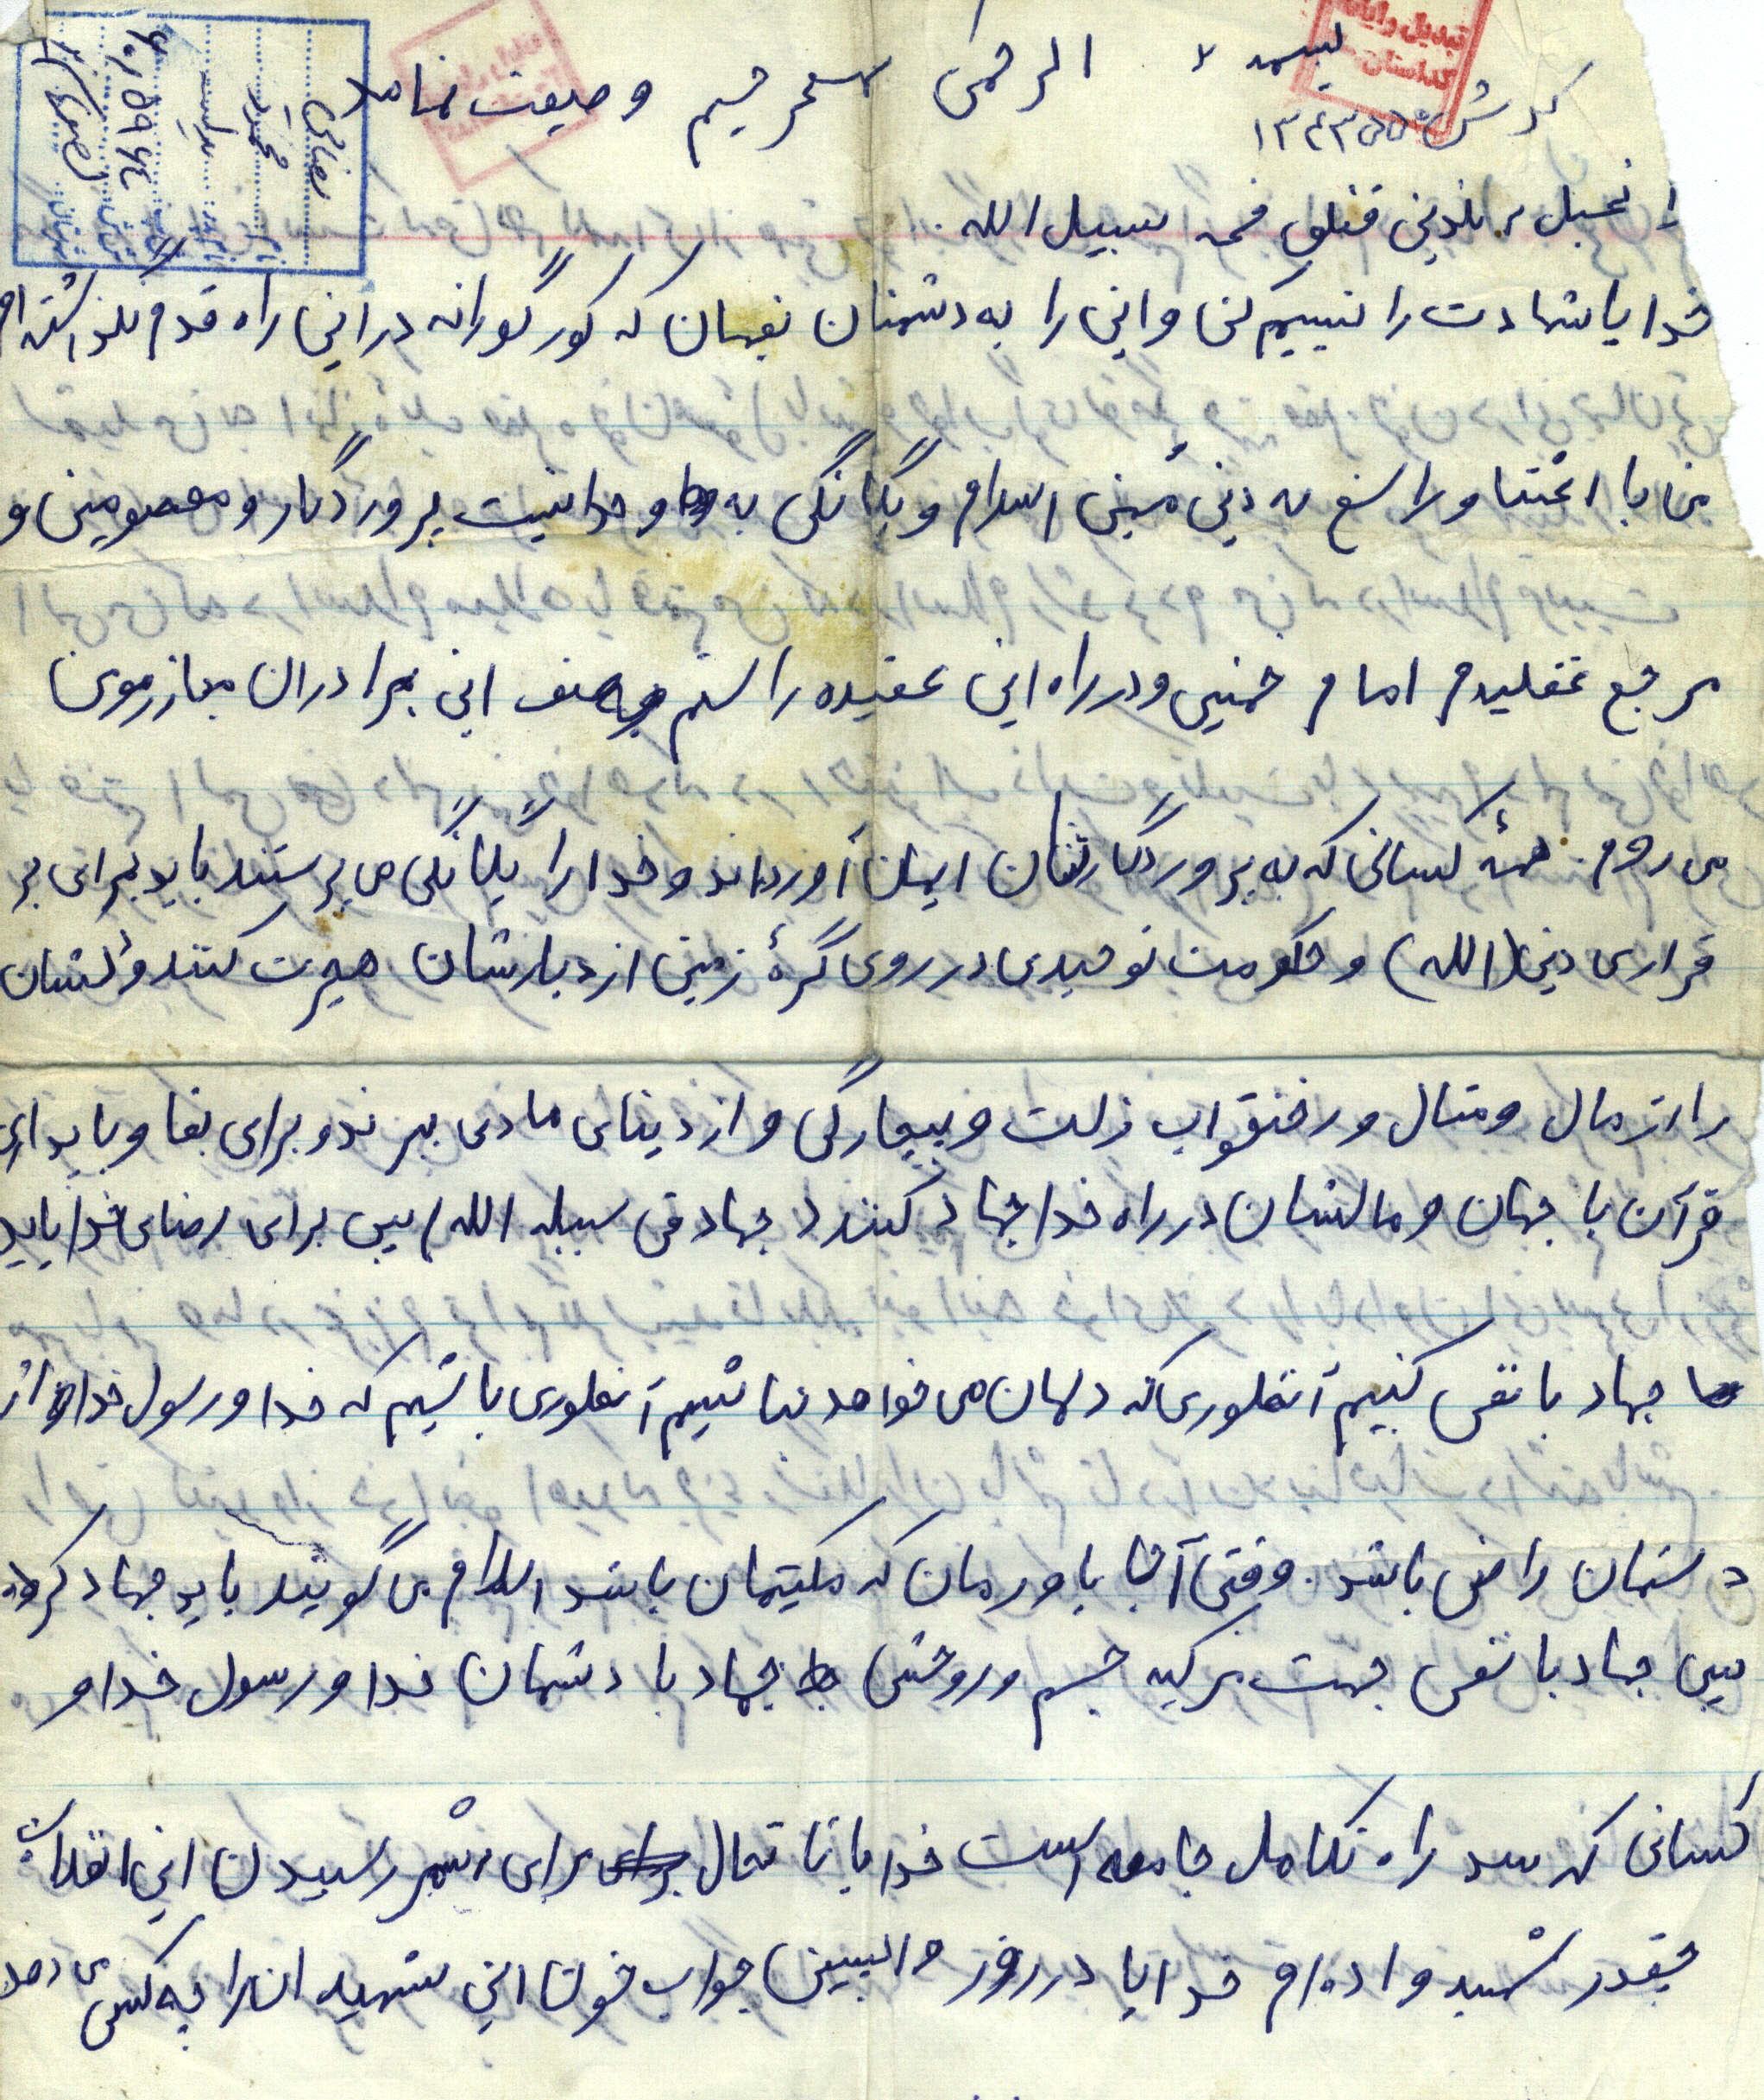 بسمه الرحمن الرحیم وصیت نامه
خدایا شهادت را نصیبم کن و این را به دشمنان بفهمان که کور کورانه در این راه قدم نگذاشته‌ام
من با اعتقاد راسخ به دین مبین اسلام و یگانگی به وحدانیت پروردگار و معصومین و
مرجع تقلیدم امام خمینی و در راه این عقیده راستم به صف این برادران مبازرمون
می روم. همهٔ کسانی که به پروردگارشان ایمان آورده‌اند و خدا را یگانگی می پرستند باید برای بر
قراری دین (الله) و حکومت توحیدی در روی کرهٔ زمین از دیارشان هجرت کنند و
را از مال و منال و رختخواب ذلت و بیچارگی و از دینای مادی ببرند و برای بقا و پایداری
قرآن با جهان و مالشان در راه خدا جهاد کنند (جهاد فی سبیله الله) پس برای رضای خدا باید
جهاد با نفس کنیم آنطوری که دلمان می خواهد نباشیم آنطوری باشیم که خدا و رسول خدا از
دستمان راضی باشد. وقتی آنجا باورمان که مکتبمان باشد اسلام می گویند باید جهاد کرد
پس جهاد با نفس جهت تزکیه جسم و روحش جهاد با دشمنان خدا و رسول خدا و
کسانی که سد راه تکامل جامعه است خدایا تا بحال برای بثمر رسیدن این انقلاب
چقدر شهید داده‌ام خدایا در روز واپسین جواب خون این شهیدان را چه کسی می دهد